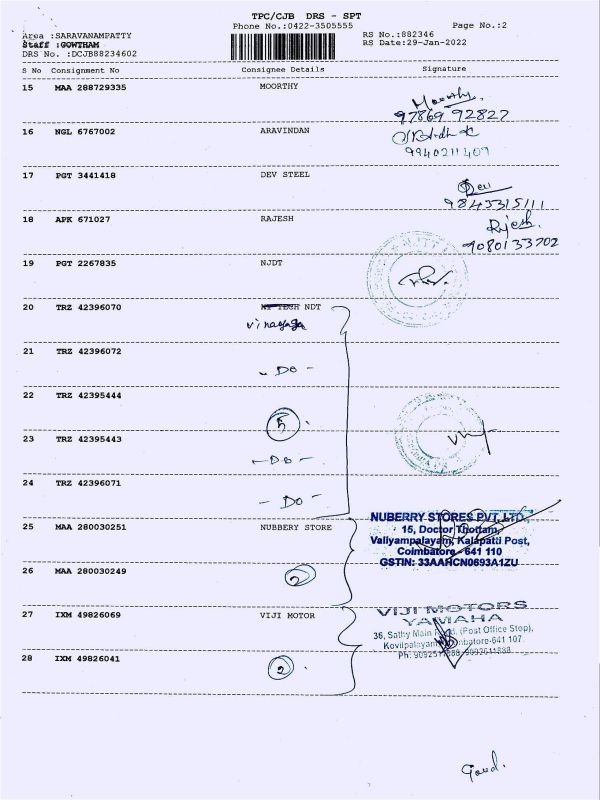 TPC/CJB DRS - SPT
Phone No.:0422-3505555 Page No.:2
Area :SARAVANAMPATTY RS No.:882346
Staff :GOWTHAM RS Date:29-Jan-2022
DRS No. :DCJB88234602
S No Consignment No Consignee Details Signature
15 MAA 288729335 MOORTHY Moorthy.
97869 92827
16 NGL 6767002 ARAVINDAN
9940211409
17 PGT 3441418 DEV STEEL Dev
9845315111
18 APK 671027 RAJESH Rajesh.
9080133702
19 PGT 2267835 NJDT
20 TRZ 42396070 NDT
vinayaga
21 TRZ 42396072
- Do -
22 TRZ 42395444
5
23 TRZ 42395443
- Do -
24 TRZ 42396071
- Do -
25 MAA 280030251 NUBBERY STORE
NUBERRY STORES PVT. LTD.,
15, Doctor Thottam,
Valiyampalayam, Kalapatti Post,
Coimbatore - 641 110
GSTIN: 33AAHCN0693A1ZU
26 MAA 280030249
2
27 IXM 49826069 VIJI MOTOR
VIJI MOTORS
YAMAHA
36, Sathy Main Road, (Post Office Stop),
Kovilpalayam, Coimbatore-641 107.
28 IXM 49826041
2